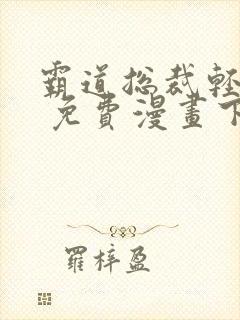 霸道总裁輕
免費漫畫下
羅梓盈